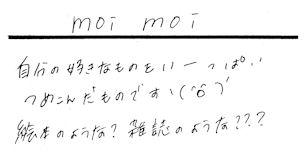 moi moi
自分の好きなものをいーっぱい
つめこんだものです、(^o^)/
絵本のような? 雑誌のような???